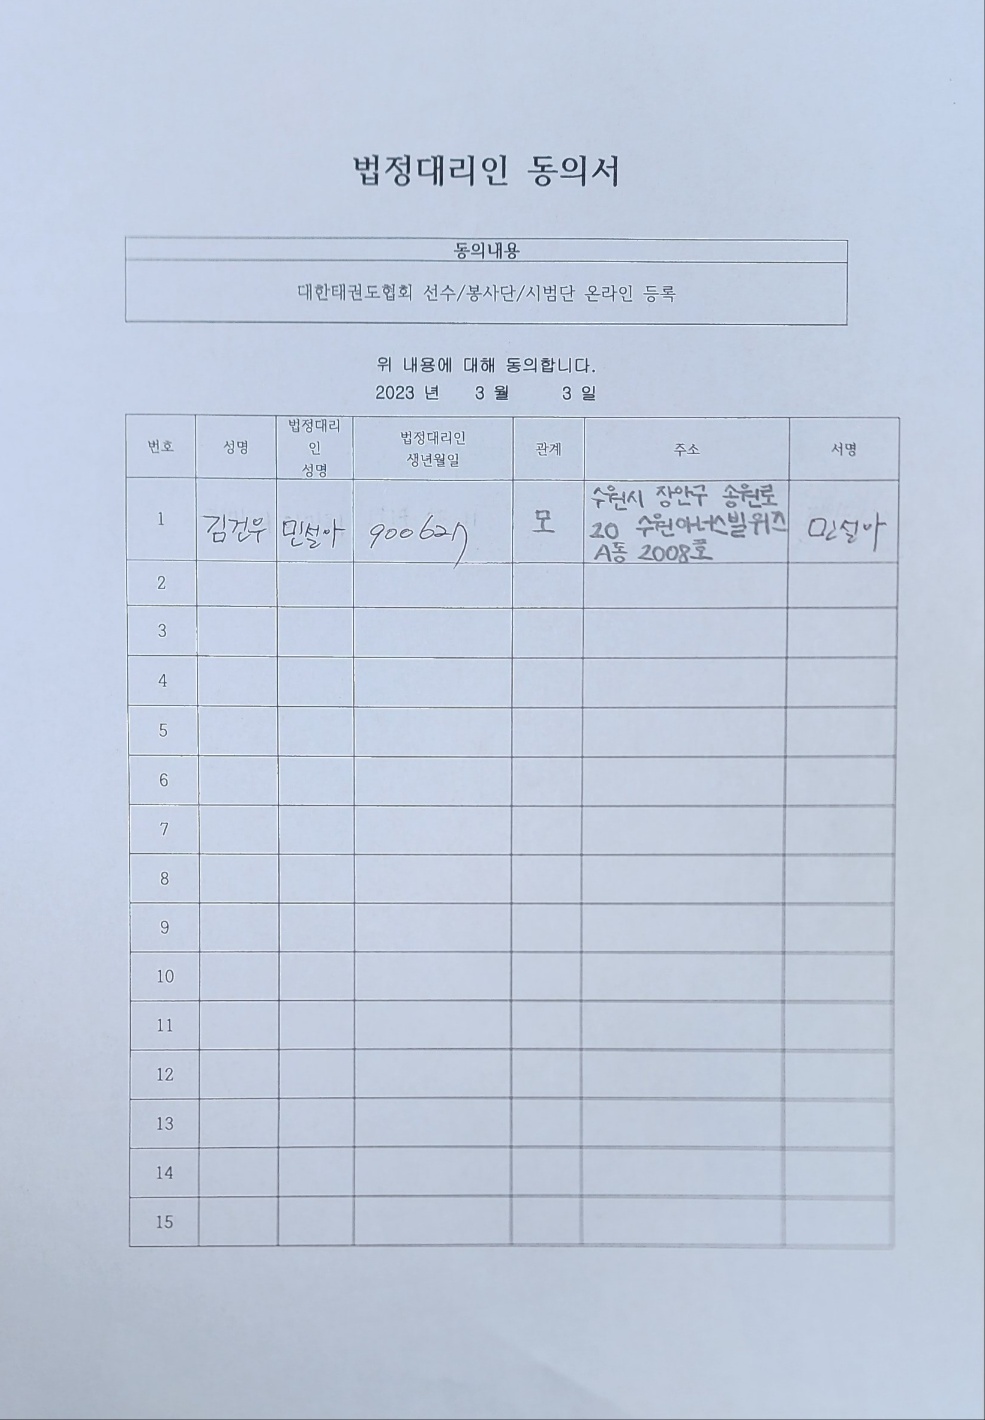 법정대리인 동의서
동의내용
대한태권도협회 선수/봉사단/시범단 온라인 등록
위 내용에 대해 동의합니다.
2023 년 3 월 3 일
번호 성명 법정대리인 성명 법정대리인 생년월일 관계 주소 서명
1 김건우 민설아 900627 모 수원시 장안구 송원로
20 수원아너스빌위즈
A동 2008호 민설아
2
3
4
5
6
7
8
9
10
11
12
13
14
15